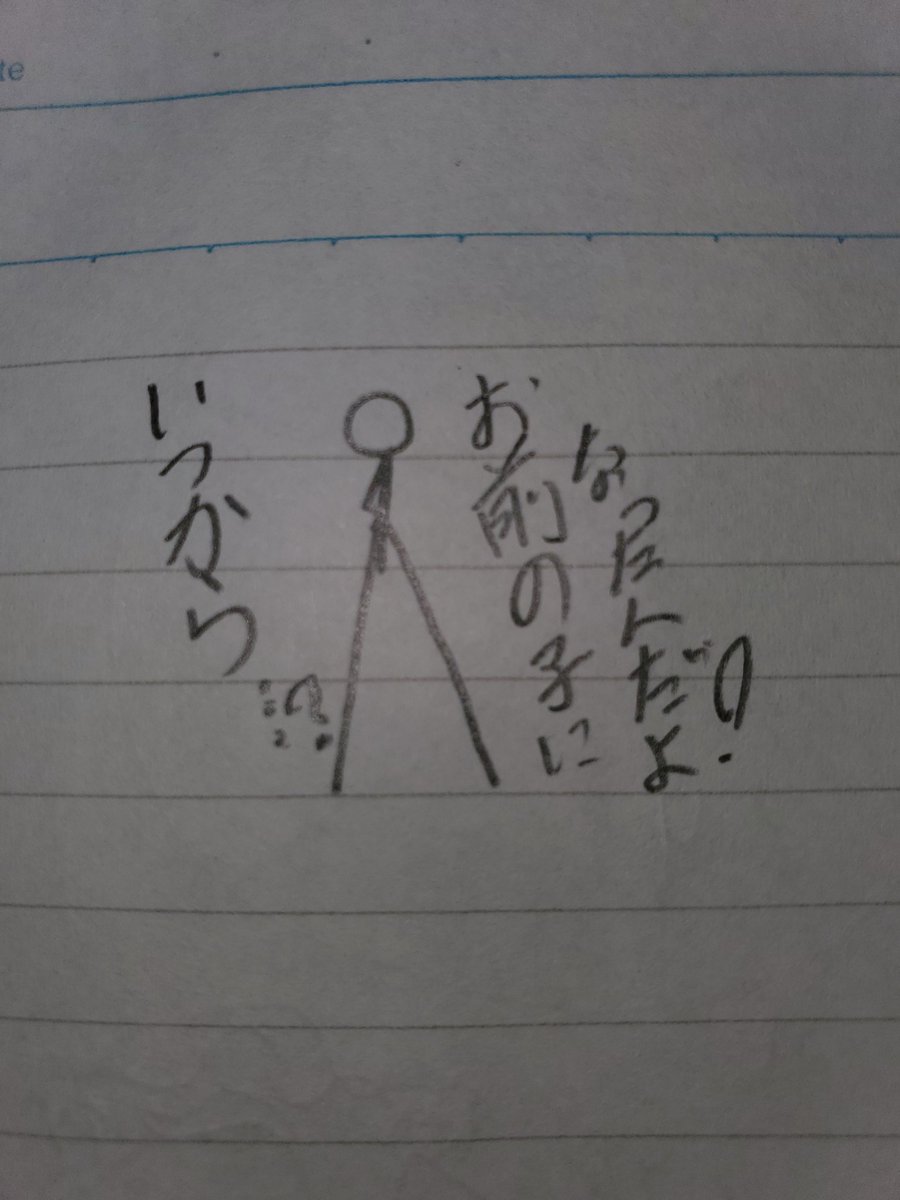 te
お前の子に
なったんだよ!
いつから